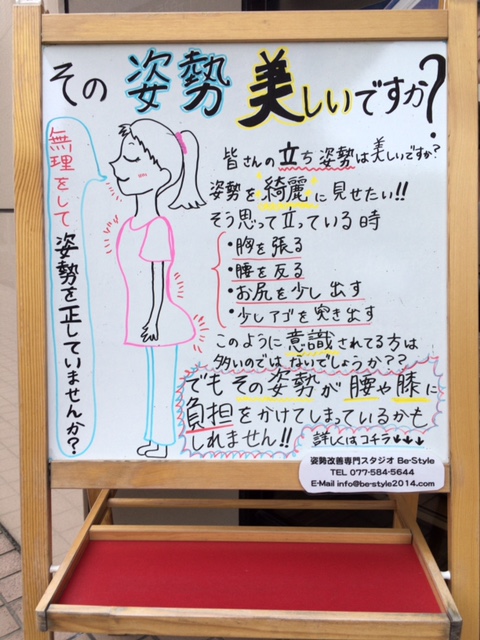 その姿勢美しいですか?
無理をして姿勢を正していませんか?
皆さんの立ち姿勢は美しいですか?
姿勢を綺麗に見せたい!!
そう思って立っている時
・胸を張る
・腰を反る
・お尻を少し出す
・少しアゴを突き出す
このように意識されてる方は
多いのではないでしょうか??
でもその姿勢が腰や膝に
負担をかけてしまっているかも
しれません!!
詳しくはコチラ↓↓↓
姿勢改善専門スタジオ Be-Style
TEL 077-584-5644
E-Mail info@be-style2014.com